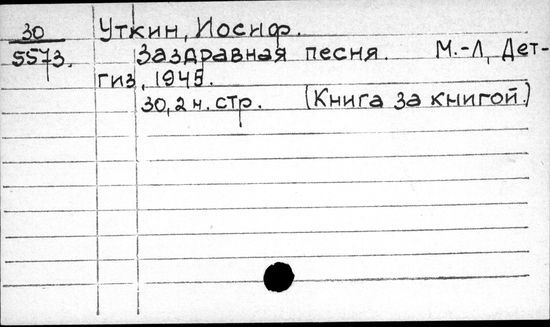 30 Уткин, Иосиф.
5573. Заздравная песня. М.-Л, Дет-
гиз, 1945.
30, 2 н. стр. (Книга за книгой.)